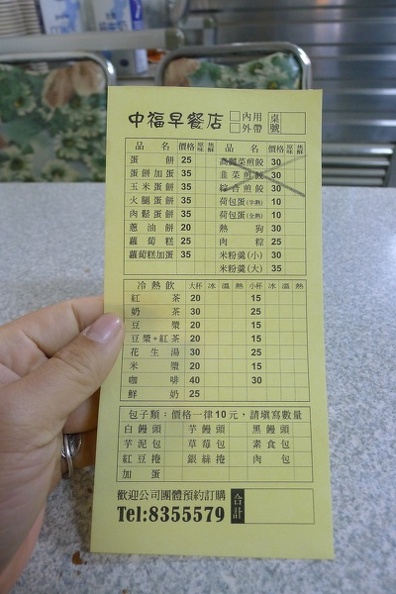 中福早餐店 □內用 □外帶 桌號
品名 價格 原味 蔥辣 品名 價格 原味 蔥辣
蛋餅 25 高麗菜煎餃 30
蛋餅加蛋 35 韭菜煎餃 30
玉米蛋餅 35 綜合煎餃 30
火腿蛋餅 35 荷包蛋(半熟) 10
肉鬆蛋餅 35 荷包蛋(全熟) 10
蔥油餅 20 熱狗 30
蘿蔔糕 25 肉粽 25
蘿蔔糕加蛋 35 米粉羹(小) 30
米粉羹(大) 35
冷熱飲 大杯 冰 溫 熱 小杯 冰 溫 熱
紅茶 20 15
奶茶 30 25
豆漿 20 15
豆漿+紅茶 20 15
花生湯 30 25
米漿 20 15
咖啡 40 30
鮮奶 25
包子類：價格一律10元，請填寫數量
白饅頭 芋饅頭 黑饅頭
芋泥包 草莓包 素食包
紅豆捲 銀絲捲 肉包
加蛋
歡迎公司團體預約訂購 合計
Tel:8355579